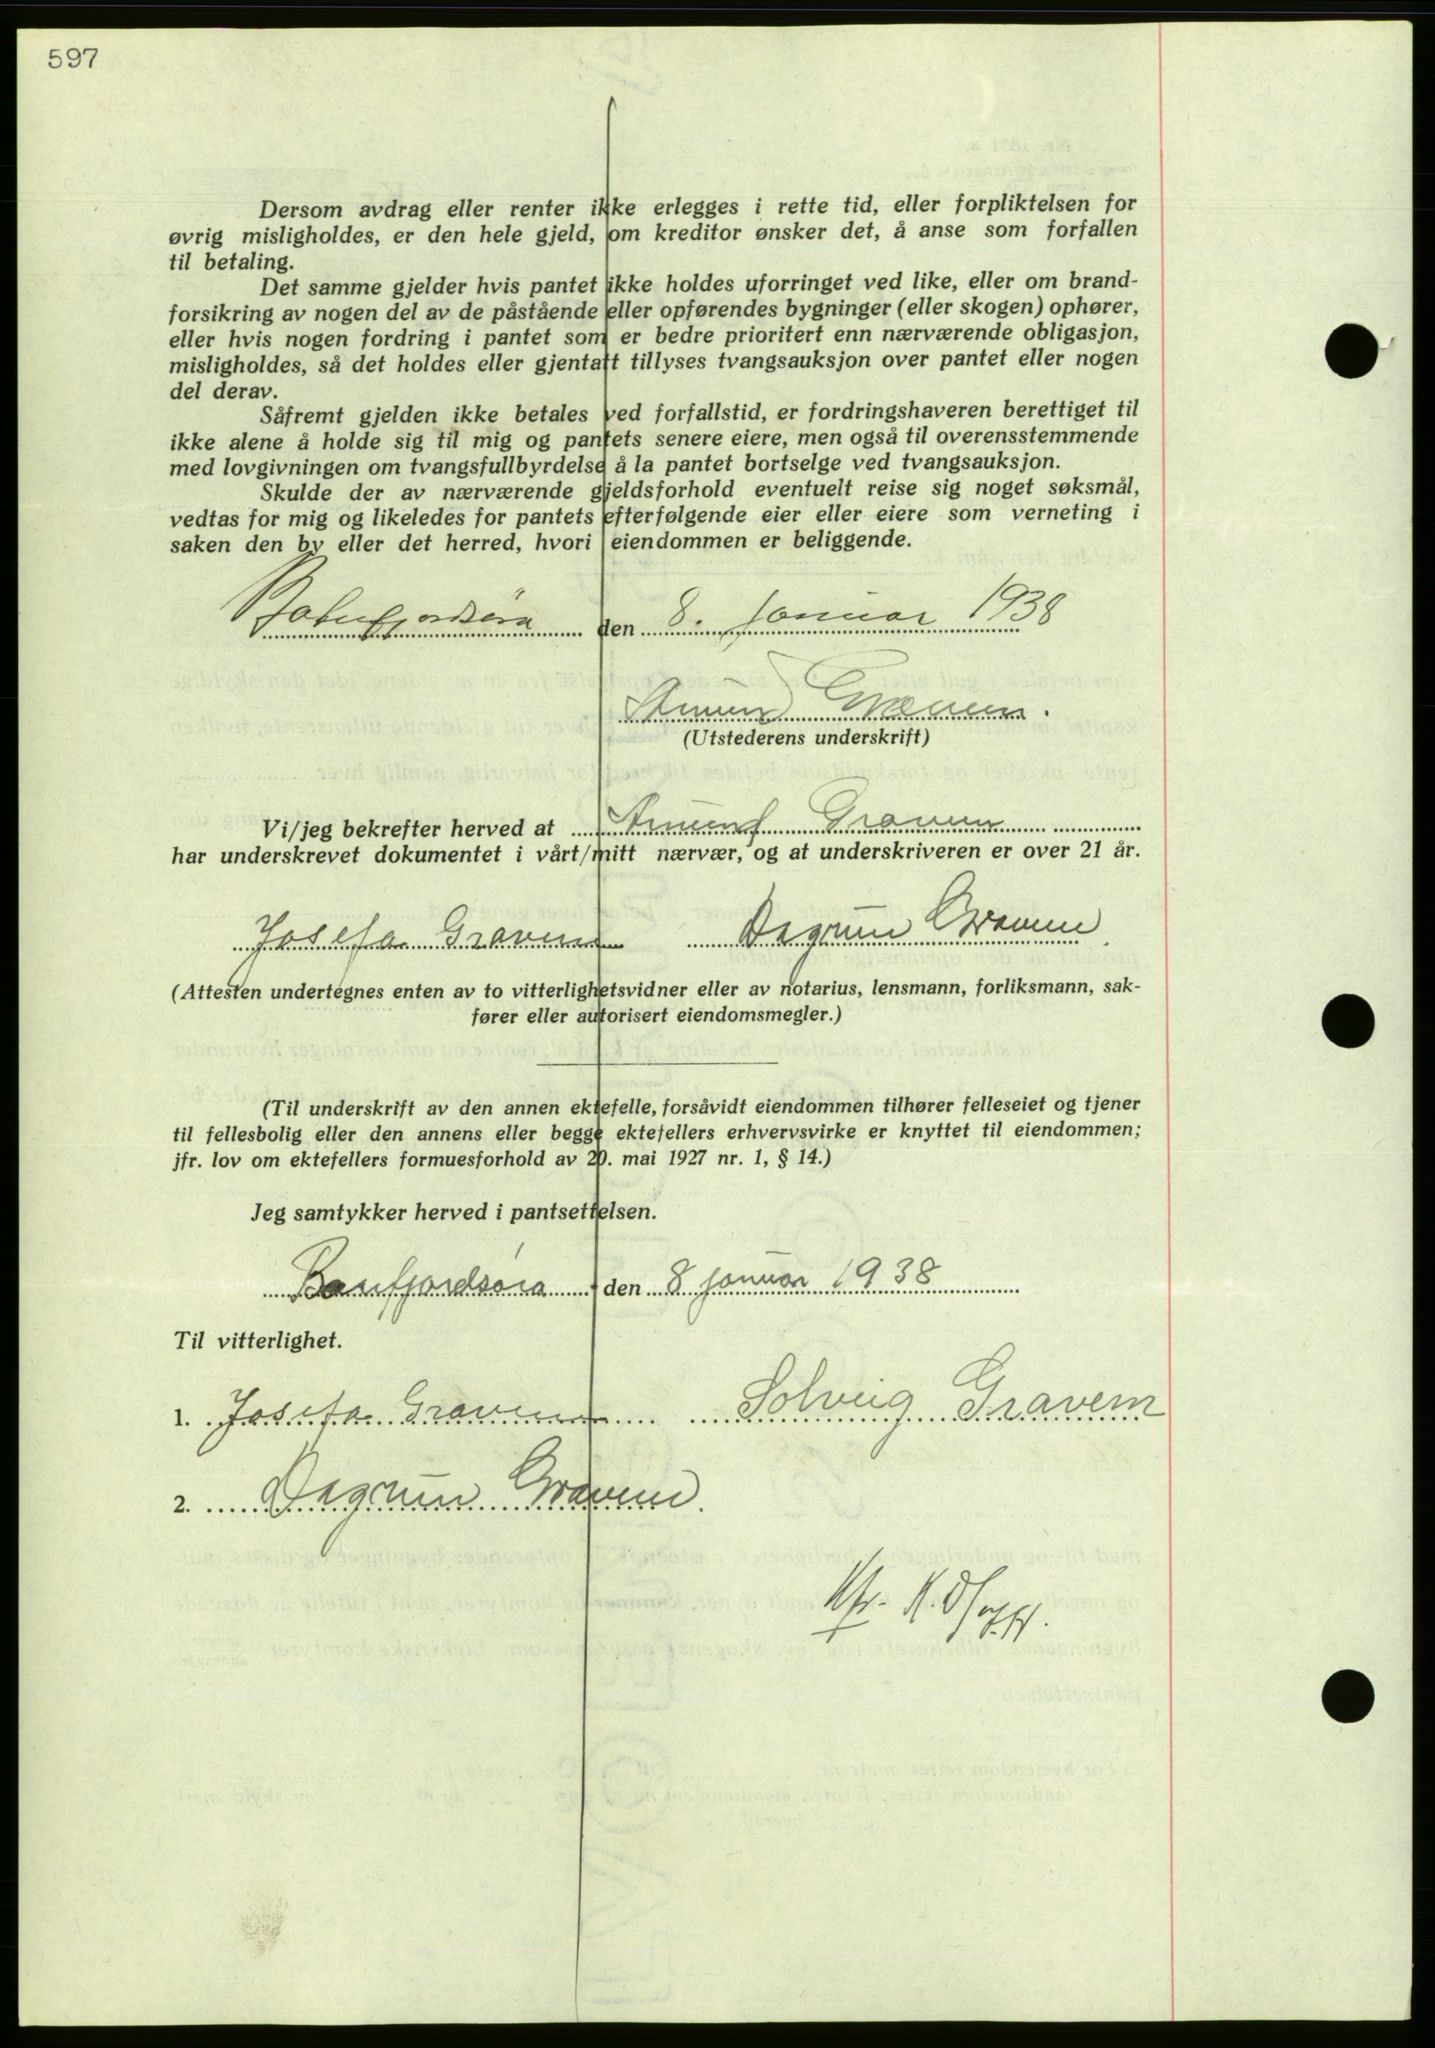 597
Dersom avdrag eller renter ikke erlegges i rette tid, eller forpliktelsen for
øvrig misligholdes, er den hele gjeld, om kreditor ønsker det, å anse som forfallen
til betaling.
Det samme gjelder hvis pantet ikke holdes uforringet ved like, eller om brand-
forsikring av nogen del av de påstående eller opførendes bygninger (eller skogen) ophører,
eller hvis nogen fordring i pantet som er bedre prioritert enn nærværende obligasjon,
misligholdes, så det holdes eller gjentatt tillyses tvangsauksjon over pantet eller nogen
del derav.
Såfremt gjelden ikke betales ved forfallstid, er fordringshaveren berettiget til
ikke alene å holde sig til mig og pantets senere eiere, men også til overensstemmende
med lovgivningen om tvangsfullbyrdelse å la pantet bortselge ved tvangsauksjon.
Skulde der av nærværende gjeldsforhold eventuelt reise sig noget søksmål,
vedtas for mig og likeledes for pantets efterfølgende eier eller eiere som verneting i
saken den by eller det herred, hvori eiendommen er beliggende.
den 8. Januar 1938
Gravem.
(Utstederens underskrift)
Vi/jeg bekrefter herved at Gravem
har underskrevet dokumentet i vårt/mitt nærvær, og at underskriveren er over 21 år.
Josefa Gravem Dagrun Gravem.
(Attesten undertegnes enten av to vitterlighetsvidner eller av notarius, lensmann, forliksmann, sak-
fører eller autorisert eiendomsmegler.)
(Til underskrift av den annen ektefelle, forsåvidt eiendommen tilhører felleseiet og tjener
til fellesbolig eller den annens eller begge ektefellers erhvervsvirke er knyttet til eiendommen;
jfr. lov om ektefellers formuesforhold av 20. mai 1927 nr. 1, § 14.)
Jeg samtykker herved i pantsettelsen.
den 8 januar 1938
Til vitterlighet.
1. Josefa Gravem Solveig Gravem
2. Dagrun Gravem.